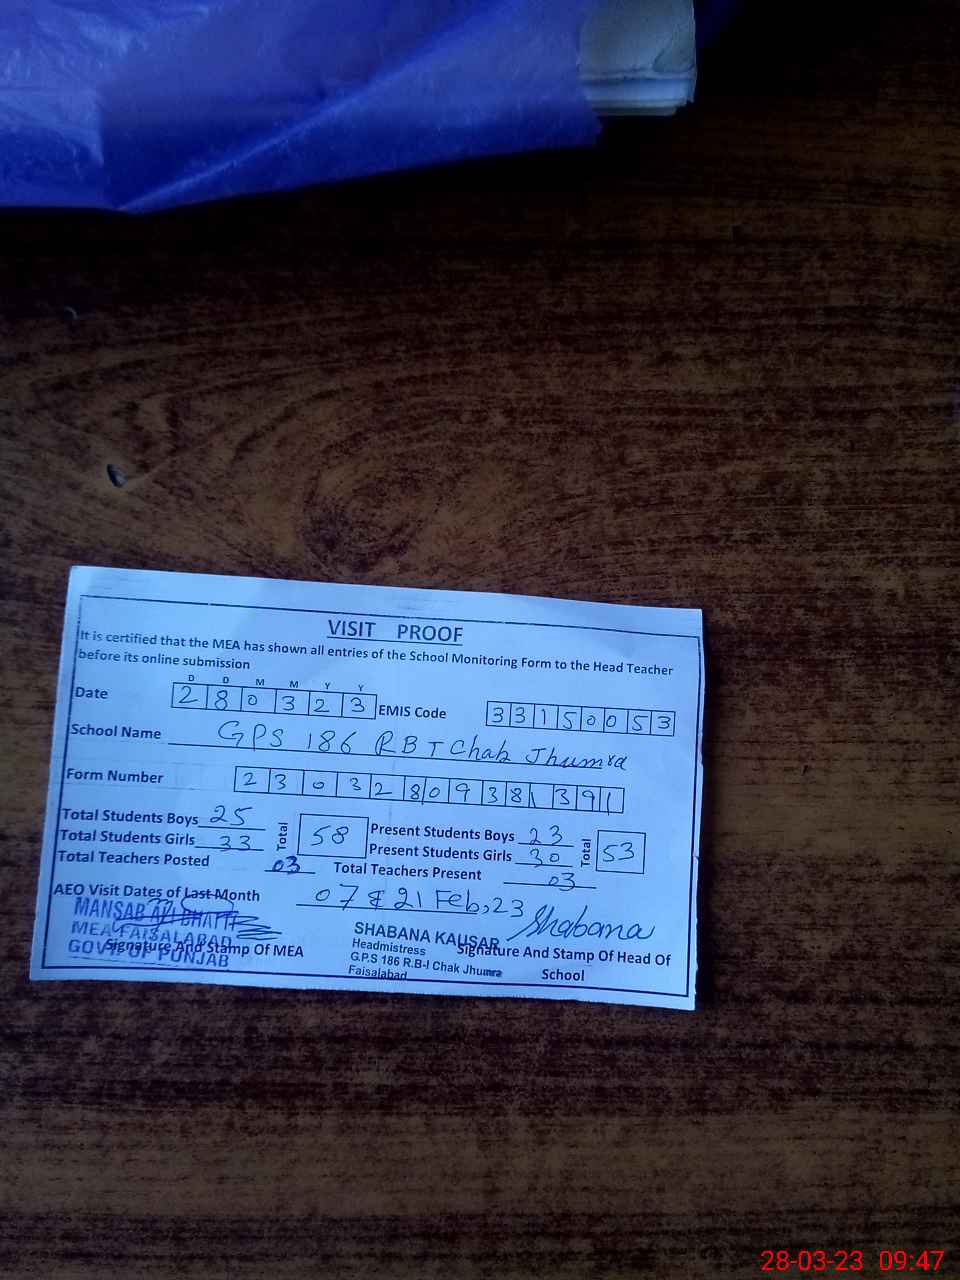 VISIT PROOF
It is certified that the MEA has shown all entries of the School Monitoring Form to the Head Teacher
before its online submission
D D M M Y Y
Date 2 8 0 3 2 3 EMIS Code 3 3 1 5 0 0 5 3
School Name GPS 186 RB I Chak Jhumra
Form Number 2 3 0 3 2 8 0 9 3 8 1 3 9 1
Total Students Boys 25 Total 58 Present Students Boys 23 Total 53
Total Students Girls 33 Present Students Girls 30
Total Teachers Posted 03 Total Teachers Present 03
AEO Visit Dates of Last Month 07 & 21 Feb, 23
MANSAB ALI BHATTI
MEA FAISALABAD
GOVT OF PUNJAB
Signature And Stamp Of MEA
Shabana
SHABANA KAUSAR
Headmistress
G.P.S 186 R.B-I Chak Jhumra
Faisalabad
Signature And Stamp Of Head Of
School
28-03-23 09:47